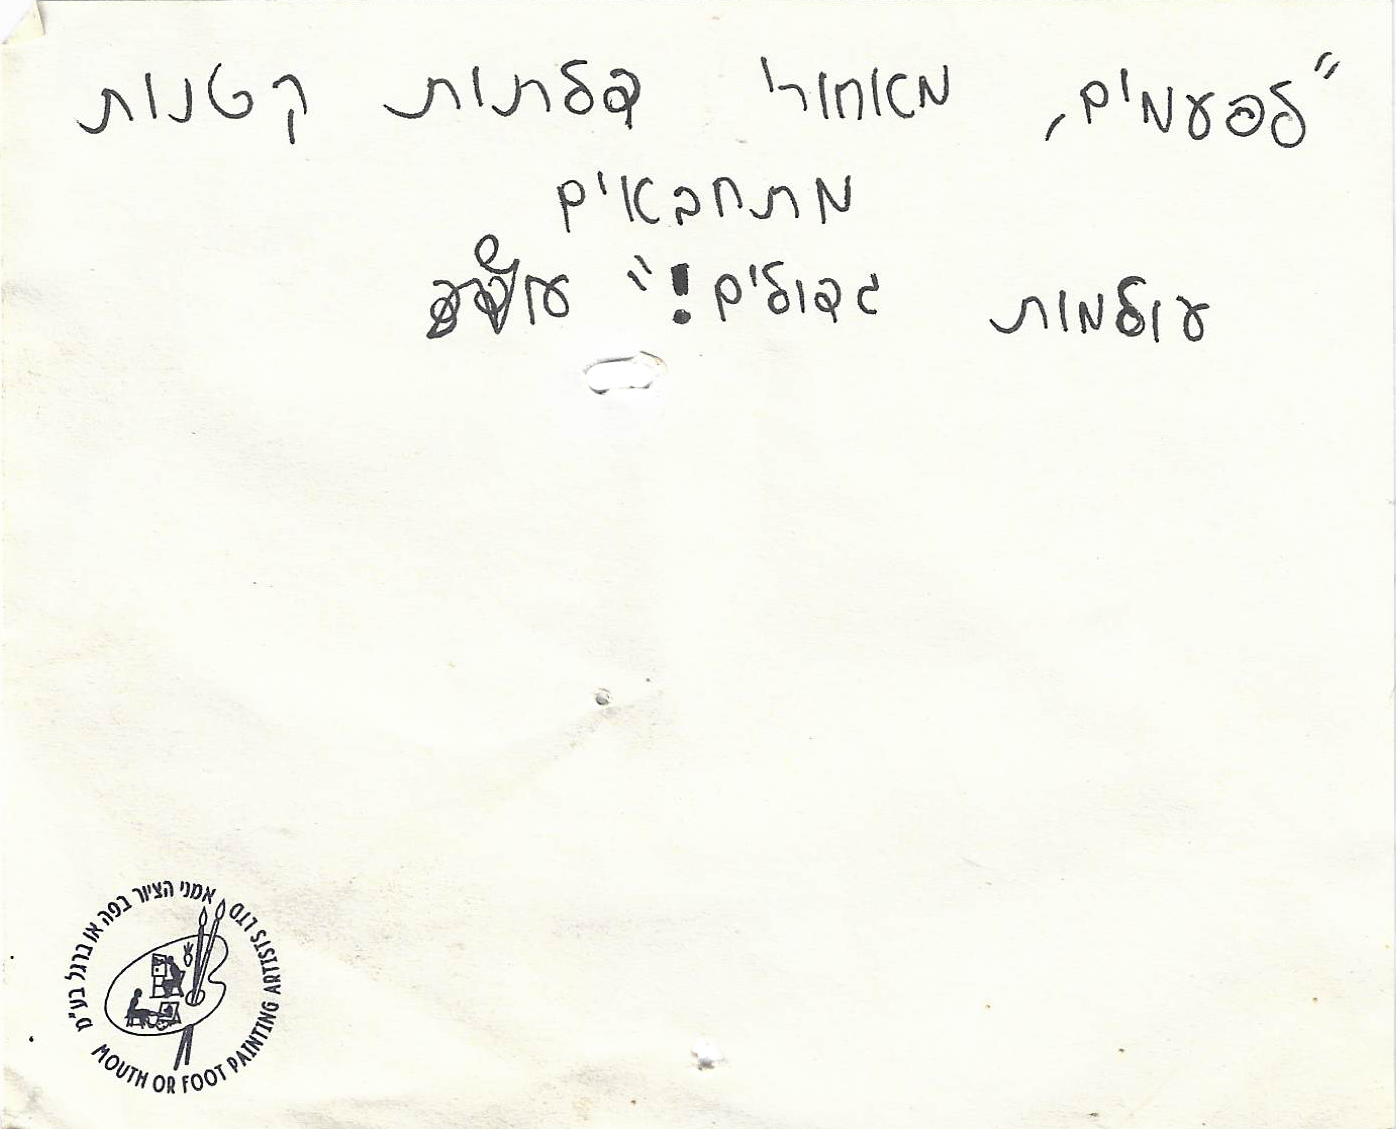 "לפעמים, מאחורי דלתות קטנות
מתחבאים
עולמות גדולים!"
אמני הציור בפה או ברגל בע"מ
MOUTH OR FOOT PAINTING ARTISTS LTD